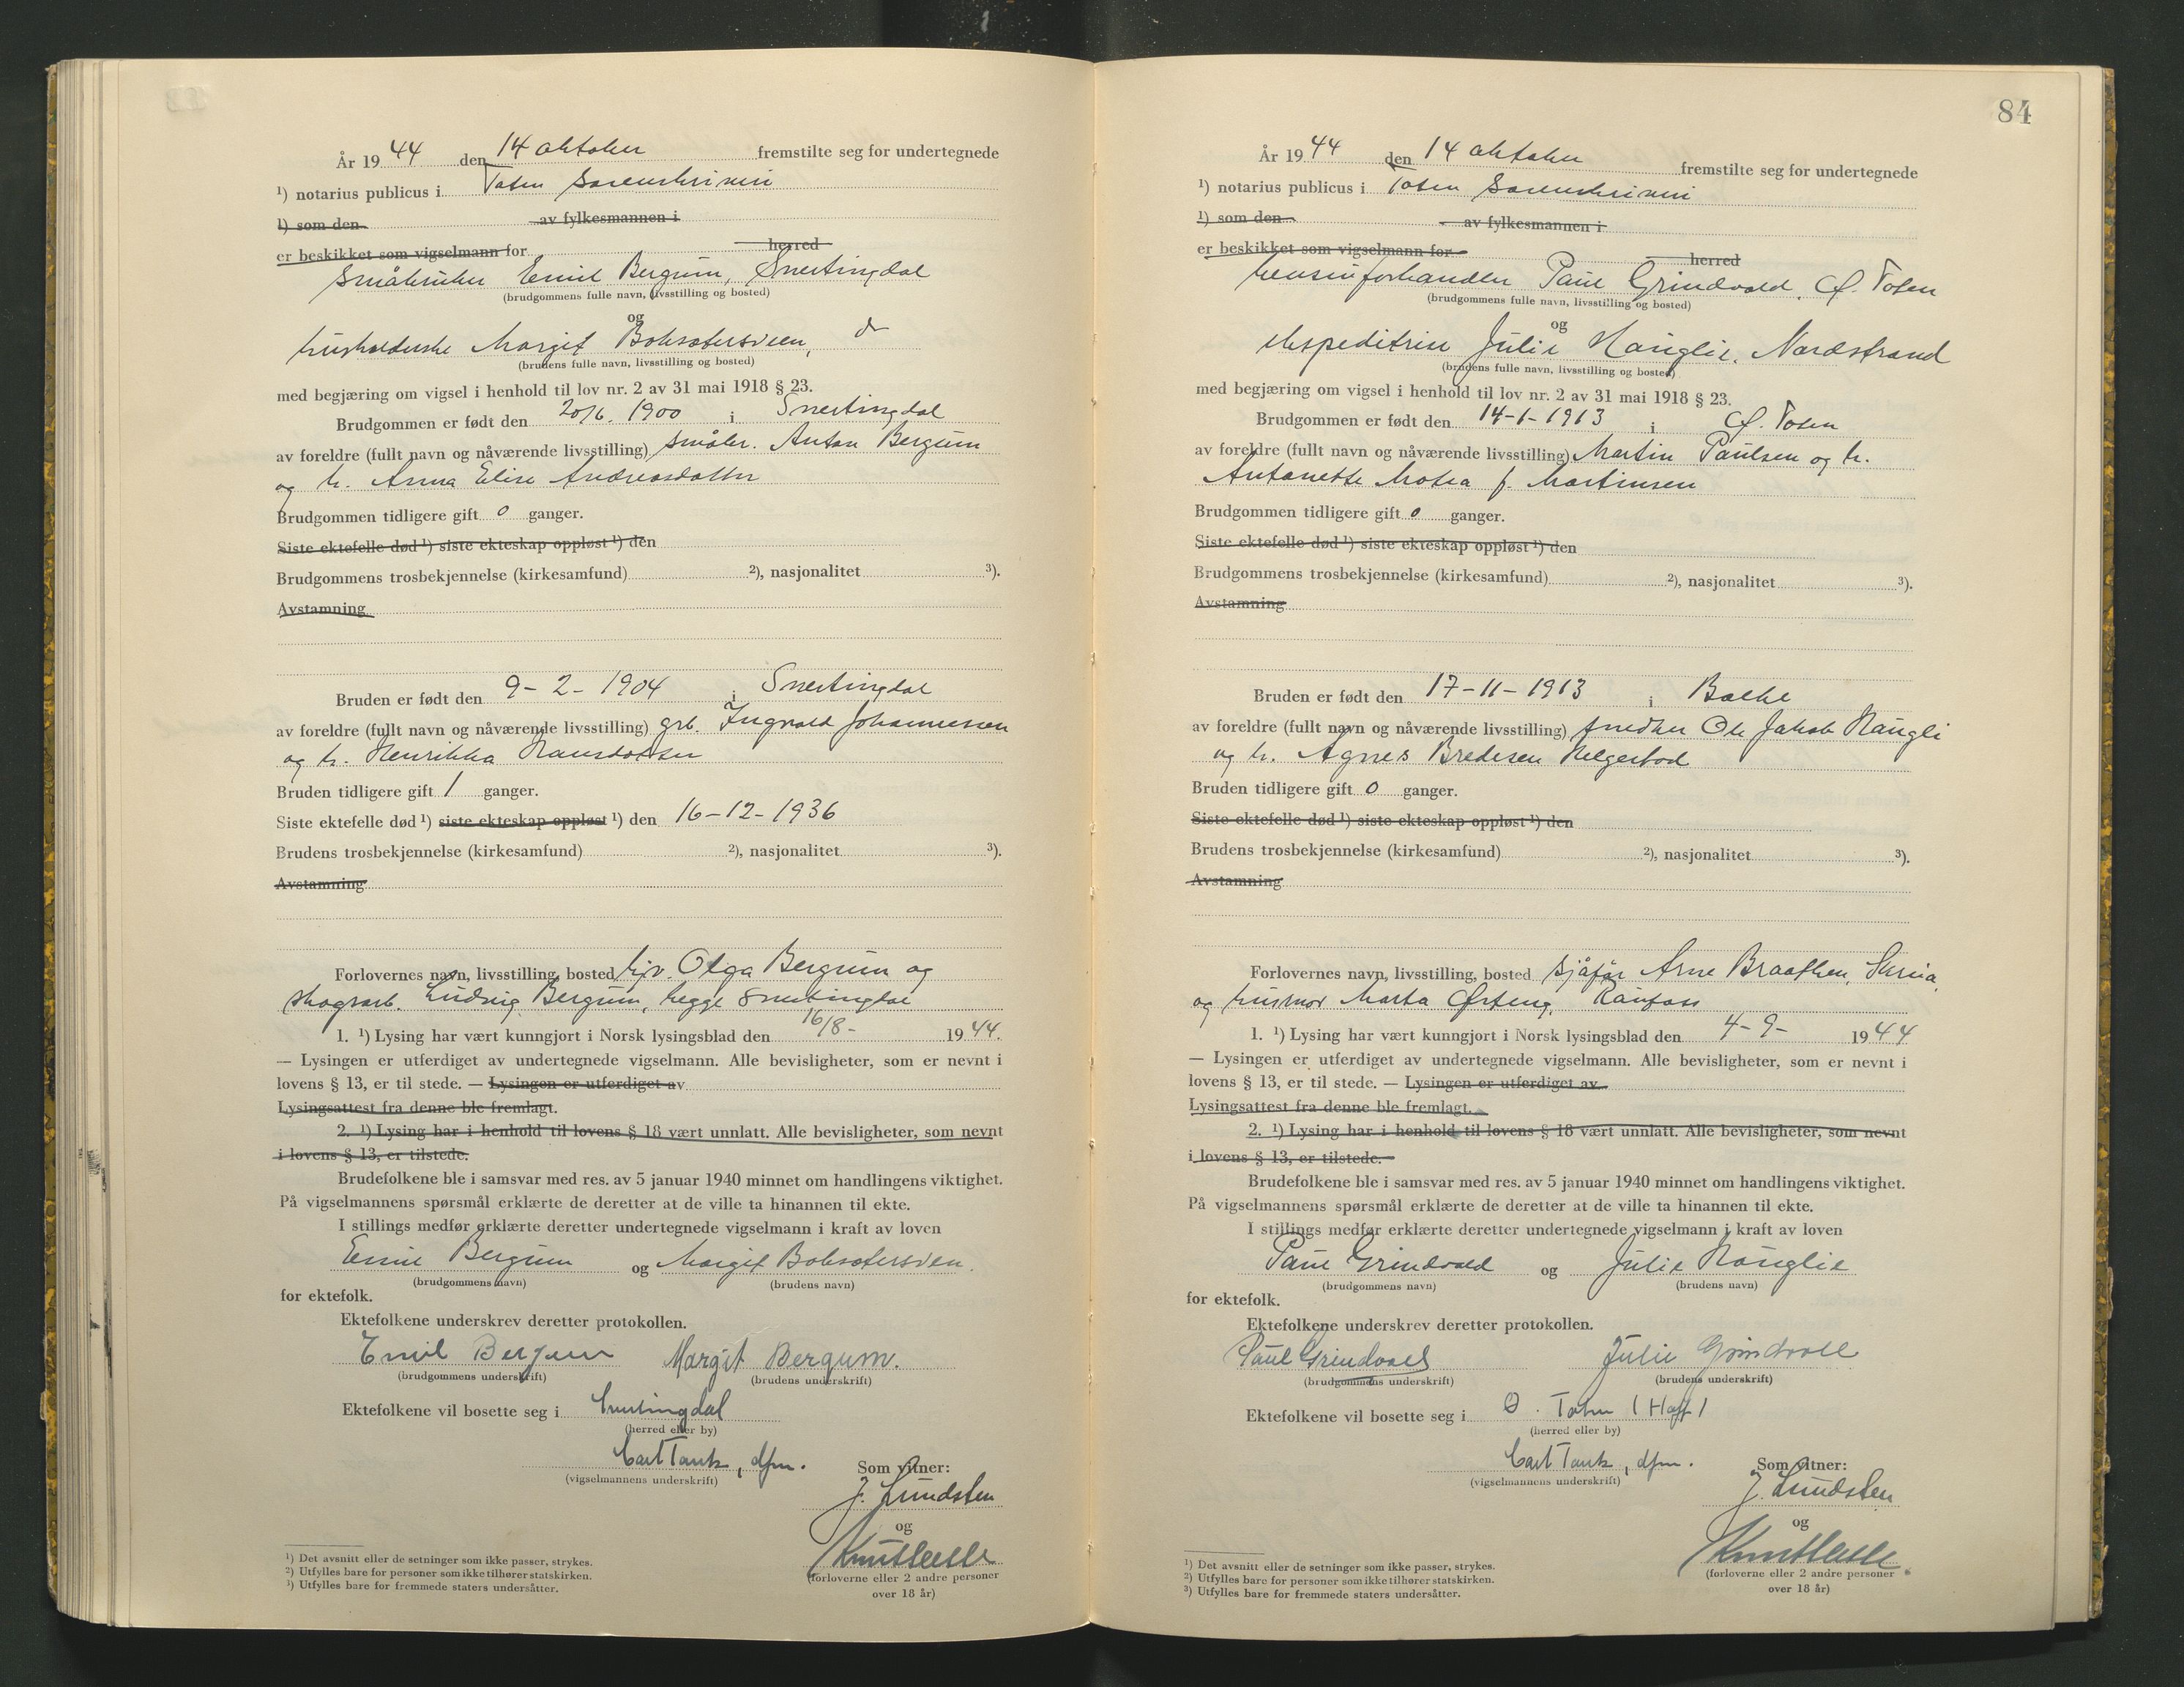 År 19 44 den 14 oktober fremstilte seg for undertegnede
¹) notarius publicus i Toten Sorenskriveri
¹) som den av fylkesmannen i
er beskikket som vigselmann for herred
Småbruker Emil Bergum, Snertingdal
(brudgommens fulle navn, livsstilling og bosted)
og
husholderske Margit Boksætersveen, do
(brudens fulle navn, livsstilling og bosted)
med begjæring om vigsel i henhold til lov nr. 2 av 31 mai 1918 § 23.
Brudgommen er født den 20/6. 1900 i Snertingdal
av foreldre (fullt navn og nåværende livsstilling) småbr. Anton Bergum
og h. Anna Elise Andreasdatter
Brudgommen tidligere gift 0 ganger.
Siste ektefelle død ¹) siste ekteskap oppløst ¹) den
Brudgommens trosbekjennelse (kirkesamfund) ²), nasjonalitet ³).
Avstamning
Bruden er født den 9-2-1904 i Snertingdal
av foreldre (fullt navn og nåværende livsstilling) grb. Ingvald Johannessen
og h. Henrikka Hansdatter
Bruden tidligere gift 1 ganger.
Siste ektefelle død ¹) siste ekteskap oppløst ¹) den 16-12-1936
Brudens trosbekjennelse (kirkesamfund) ²), nasjonalitet ³).
Avstamning
Forlovernes navn, livsstilling, bosted Olga Bergum og
skogsarb. Ludvig Bergum, begge Snertingdal
1. ¹) Lysing har vært kunngjort i Norsk lysingsblad den 16/8- 19 44.
— Lysingen er utferdiget av undertegnede vigselmann. Alle bevisligheter, som er nevnt i
lovens § 13, er til stede. — Lysingen er utferdiget av
Lysingsattest fra denne ble fremlagt.
2. ¹) Lysing har i henhold til lovens § 18 vært unnlatt. Alle bevisligheter, som nevnt
i lovens § 13, er tilstede.
Brudefolkene ble i samsvar med res. av 5 januar 1940 minnet om handlingens viktighet.
På vigselmannens spørsmål erklærte de deretter at de ville ta hinannen til ekte.
I stillings medfør erklærte deretter undertegnede vigselmann i kraft av loven
Emil Bergum og Margit Boksætersveen.
(brudgommens navn) (brudens navn)
for ektefolk.
Ektefolkene underskrev deretter protokollen.
Emil Bergum Margit Bergum.
(brudgommens underskrift) (brudens underskrift)
Ektefolkene vil bosette seg i Snertingdal
(herred eller by)
Carl Tank, dfm. Som vitner:
(vigselmannens underskrift)
J. Lundsten
og
(forloverne eller 2 andre personer
over 18 år)
¹) Det avsnitt eller de setninger som ikke passer, strykes.
²) Utfylles bare for personer som ikke tilhører statskirken.
³) Utfylles bare for fremmede staters undersåtter.
84
År 19 44 den 14 oktober fremstilte seg for undertegnede
¹) notarius publicus i Toten Sorenskriveri
¹) som den av fylkesmannen i
er beskikket som vigselmann for herred
bensinforhandler Paul Grindvold, Ø. Toten
(brudgommens fulle navn, livsstilling og bosted)
og
ekspeditrise Julie Hauglie, Nordstrand
(brudens fulle navn, livsstilling og bosted)
med begjæring om vigsel i henhold til lov nr. 2 av 31 mai 1918 § 23.
Brudgommen er født den 14-1-1913 i Ø. Toten
av foreldre (fullt navn og nåværende livsstilling) Martin Paulsen og h.
Antonette Matea f. Martinsen
Brudgommen tidligere gift 0 ganger.
Siste ektefelle død ¹) siste ekteskap oppløst ¹) den
Brudgommens trosbekjennelse (kirkesamfund) ²), nasjonalitet ³).
Avstamning
Bruden er født den 17-11-1913 i Balke
av foreldre (fullt navn og nåværende livsstilling) snedker Ole Jakob Haugli
og h. Agnes Bredesen Helgestad
Bruden tidligere gift 0 ganger.
Siste ektefelle død ¹) siste ekteskap oppløst ¹) den
Brudens trosbekjennelse (kirkesamfund) ²), nasjonalitet ³).
Avstamning
Forlovernes navn, livsstilling, bosted sjåfør Arne Braathen, Skreia,
og husmor Marta Ørteng, Raufoss
1. ¹) Lysing har vært kunngjort i Norsk lysingsblad den 4-9- 19 44
— Lysingen er utferdiget av undertegnede vigselmann. Alle bevisligheter, som er nevnt i
lovens § 13, er til stede. — Lysingen er utferdiget av
Lysingsattest fra denne ble fremlagt.
2. ¹) Lysing har i henhold til lovens § 18 vært unnlatt. Alle bevisligheter, som nevnt
i lovens § 13, er tilstede.
Brudefolkene ble i samsvar med res. av 5 januar 1940 minnet om handlingens viktighet.
På vigselmannens spørsmål erklærte de deretter at de ville ta hinannen til ekte.
I stillings medfør erklærte deretter undertegnede vigselmann i kraft av loven
Paul Grindvold og Julie Hauglie
(brudgommens navn) (brudens navn)
for ektefolk.
Ektefolkene underskrev deretter protokollen.
Paul Grindvoll Julie Grindvoll
(brudgommens underskrift) (brudens underskrift)
Ektefolkene vil bosette seg i Ø. Toten (Hoff)
(herred eller by)
Carl Tank, dfm. Som vitner:
(vigselmannens underskrift)
J. Lundsten
og
(forloverne eller 2 andre personer
over 18 år)
¹) Det avsnitt eller de setninger som ikke passer, strykes.
²) Utfylles bare for personer som ikke tilhører statskirken.
³) Utfylles bare for fremmede staters undersåtter.